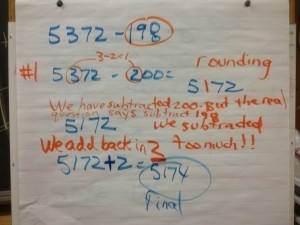 5372 - 198
3-2=1
rounding
#1 5372 - 200=
5172
We have subtracted 200. But the real
question says subtract 198
5172 We subtracted
too much!!
We add back in 2
5172+2= 5174
Final